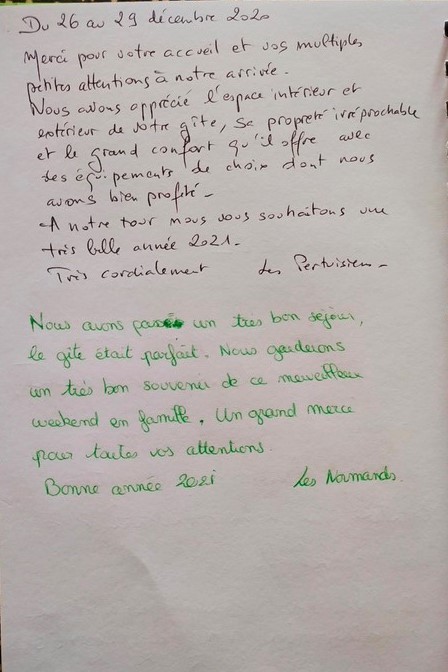 Du 26 au 29 décembre 2020
Merci pour votre accueil et vos multiples
petites attentions à notre arrivée.
Nous avons apprécié l'espace intérieur et
extérieur de votre gîte, sa propreté irréprochable
et le grand confort qu'il offre avec
des équipements de choix dont nous
avons bien profité -
A notre tour nous vous souhaitons une
très belle année 2021 -
Très cordialement Les Pertuisiens -
Nous avons passés un très bon séjour,
le gîte était parfait. Nous garderons
un très bon souvenir de ce merveilleux
weekend en famille. Un grand merci
pour toutes vos attentions.
Bonne année 2021 Les Normands.